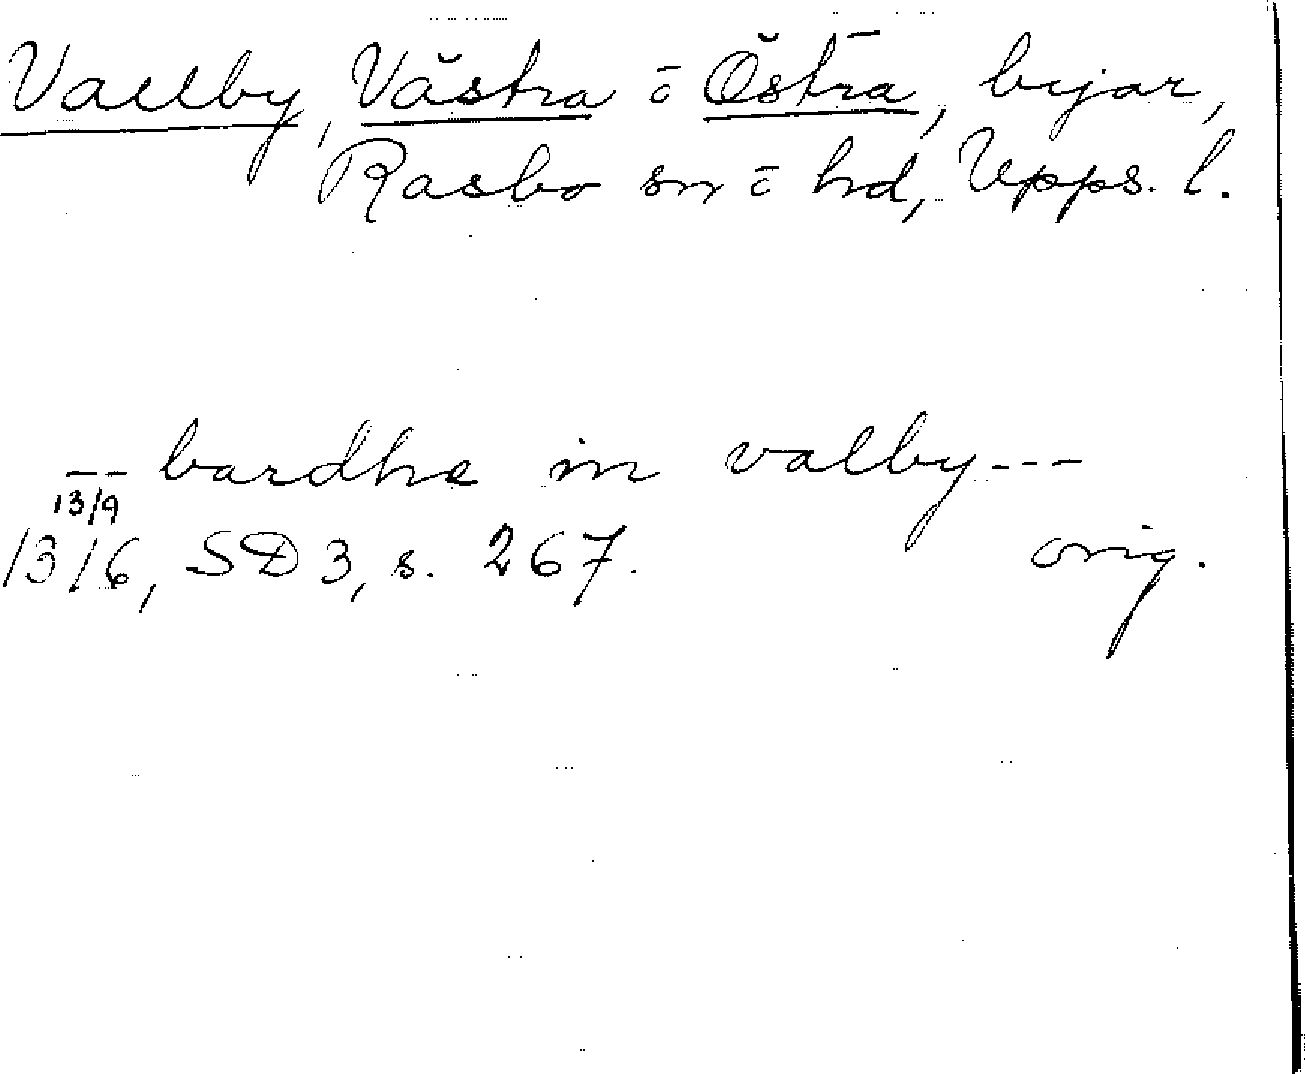 Vallby, Västra o Östra, byjar,
Rasbo sn o hd, Upps. l.
-- bardhe in valby ---
13/9
1316, SD 3, s. 267. orig.